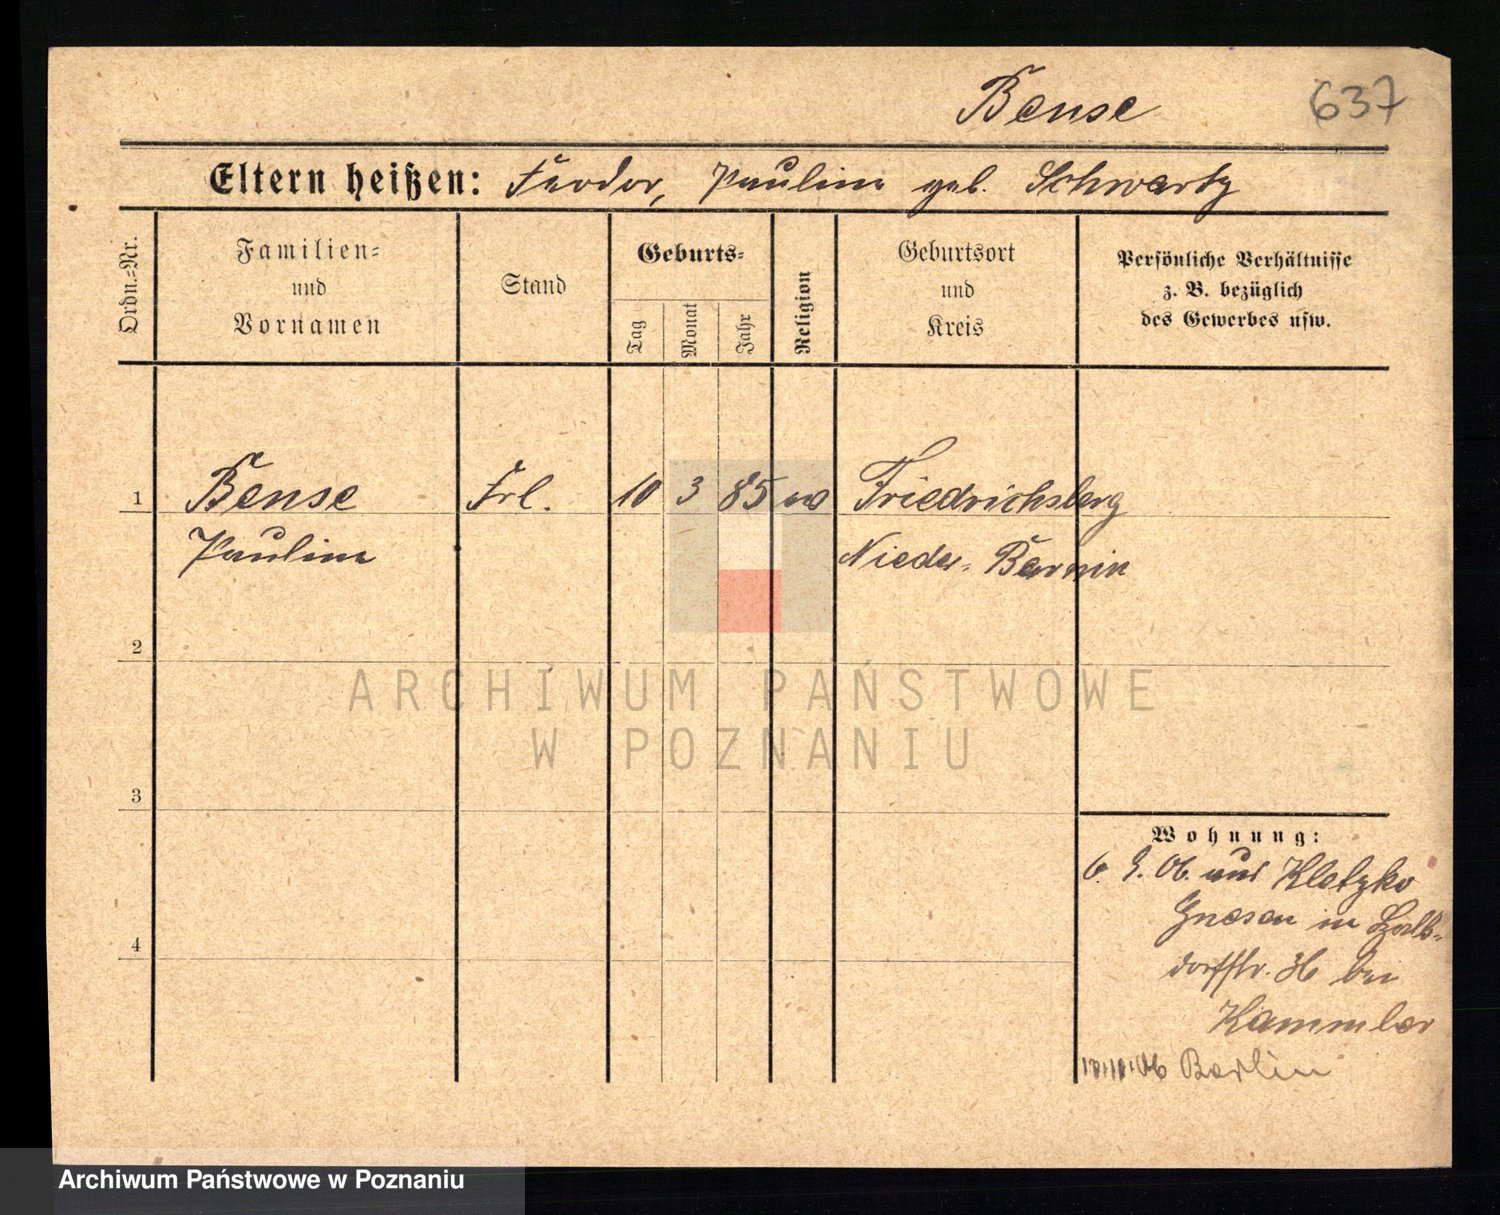 Bense 637
Eltern heißen: Feodor, Pauline geb. Schwartz
Ordn.=Nr.
Familien=
und
Vornamen
Stand
Geburts=
Tag
Monat
Jahr
Religion
Geburtsort
und
Kreis
Persönliche Verhältnisse
z. B. bezüglich
des Gewerbes usw.
1 Bense Frl. 10 3 85 Friedrichsberg
Pauline Nieder=Barnim
2
ARCHIWUM PAŃSTWOWE
W POZNANIU
3
Wohnung:
6. 9. 06. aus Kletzko
Gnesen in
dorffstr. 36 bei
4
Kammler
06 Berlin
Archiwum Państwowe w Poznaniu